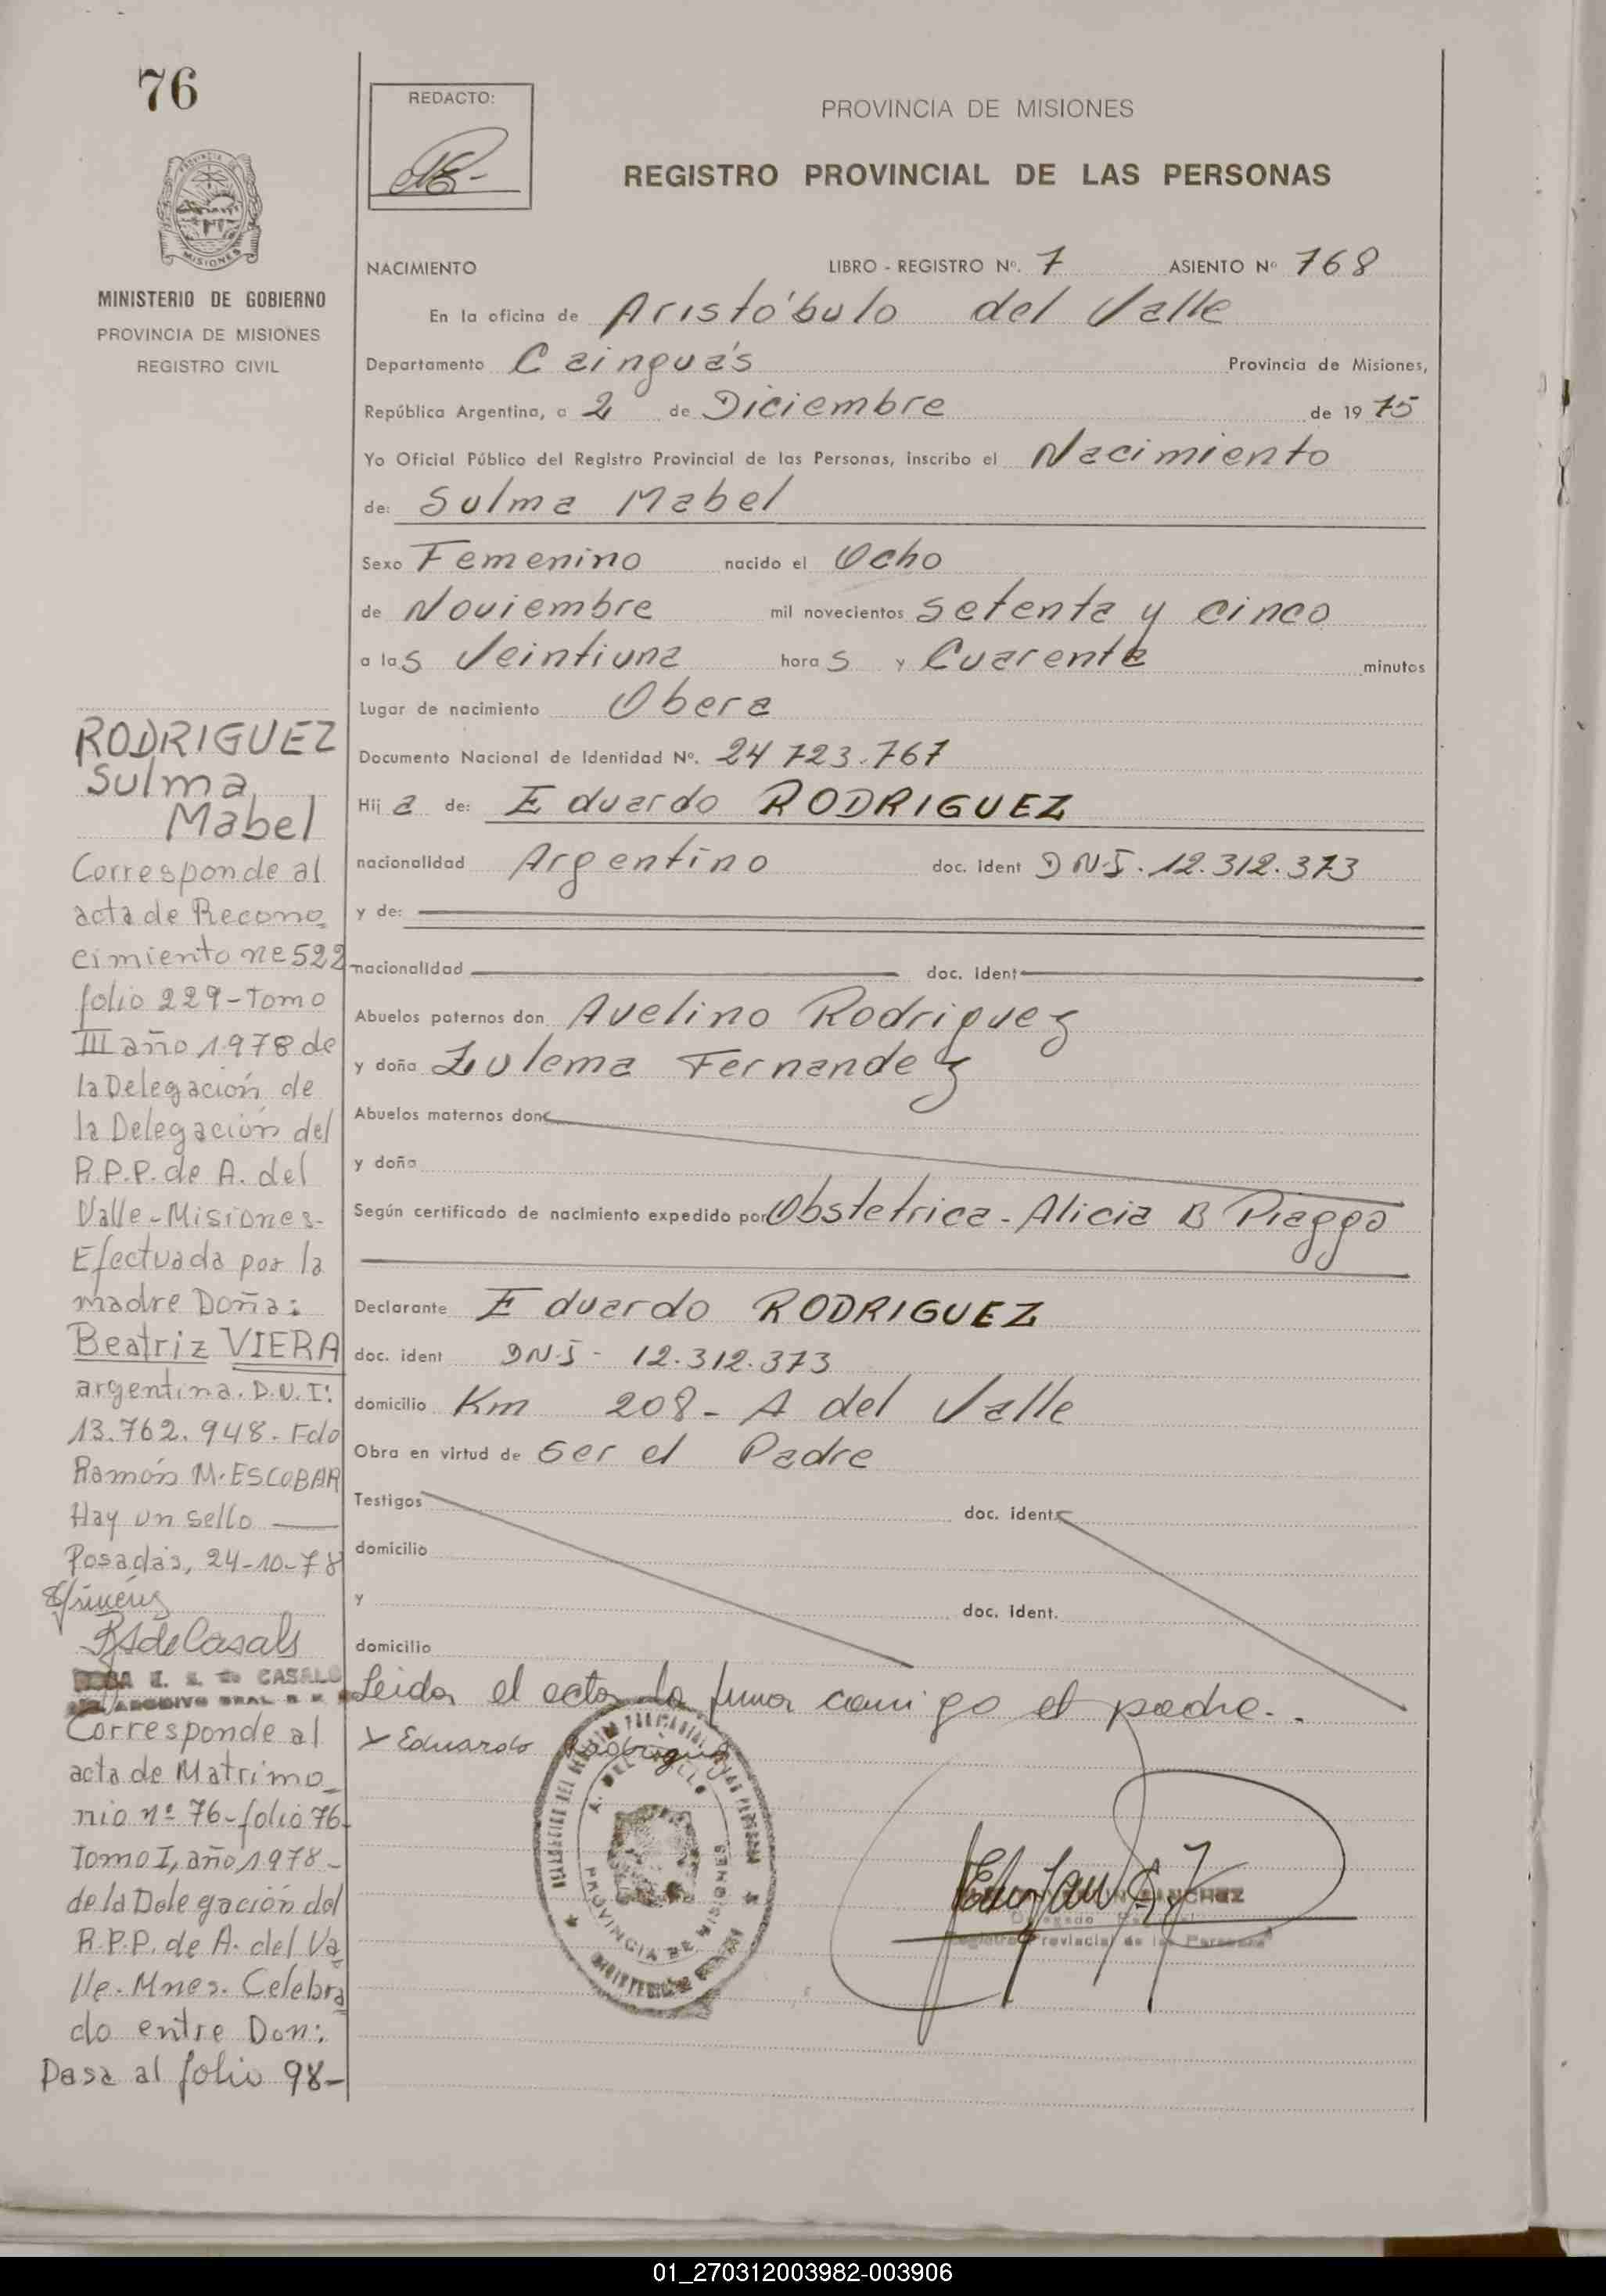 76
REDACTO:
PROVINCIA DE MISIONES
REGISTRO PROVINCIAL DE LAS PERSONAS
MINISTERIO DE GOBIERNO
PROVINCIA DE MISIONES
REGISTRO CIVIL
NACIMIENTO LIBRO - REGISTRO Nº. 7 ASIENTO Nº 768
En la oficina de Aristóbulo del Valle
Departamento Cainguás Provincia de Misiones,
República Argentina, a 2 de Diciembre de 1975
Yo Oficial Público del Registro Provincial de las Personas, inscribo el Nacimiento
de: Sulma Mabel
Sexo Femenino nacido el Ocho
de Noviembre mil novecientos setenta y cinco
a las Veintiuna horas y Cuarenta minutos
Lugar de nacimiento Obera
Documento Nacional de Identidad Nº. 24 723.767
Hija de: Eduardo RODRIGUEZ
nacionalidad Argentino doc. ident DNI. 12.312.373
y de:
nacionalidad doc. ident
Abuelos paternos don Avelino Rodriguez
y doña Zulema Fernandez
Abuelos maternos don
y doña
Según certificado de nacimiento expedido por Obstetrica - Alicia B Piaggo
Declarante Eduardo RODRIGUEZ
doc. ident DNI - 12.312.373
domicilio Km 208 - A del Valle
Obra en virtud de ser el Padre
Testigos doc. ident.
domicilio
y doc. ident.
domicilio
Leida el acta la firma comigo el padre.
x Eduardo Rodriguez
A. DEL VALLE
PROVINCIA DE MISIONES
SANCHEZ
Registro Provincial de las Personas
RODRIGUEZ
Sulma
Mabel
Corresponde al
acta de Recono
cimiento nº 522
folio 229 - Tomo
III año 1978 de
la Delegación de
la Delegación del
R.P.P. de A. del
Valle - Misiones -
Efectuada por la
madre Doña:
Beatriz VIERA
argentina. D.N.I:
13.762.948. Fdo
Ramón M. ESCOBAR
Hay un sello
Posadas, 24-10-78
de Casals
E. S. de CASALS
Corresponde al
acta de Matrimo
nio nº 76 - folio 76
Tomo I, año 1978 -
de la Delegación del
R.P.P. de A. del Va
lle - Mnes. Celebra
do entre Don:
Pasa al folio 98 -
01_270312003982-003906